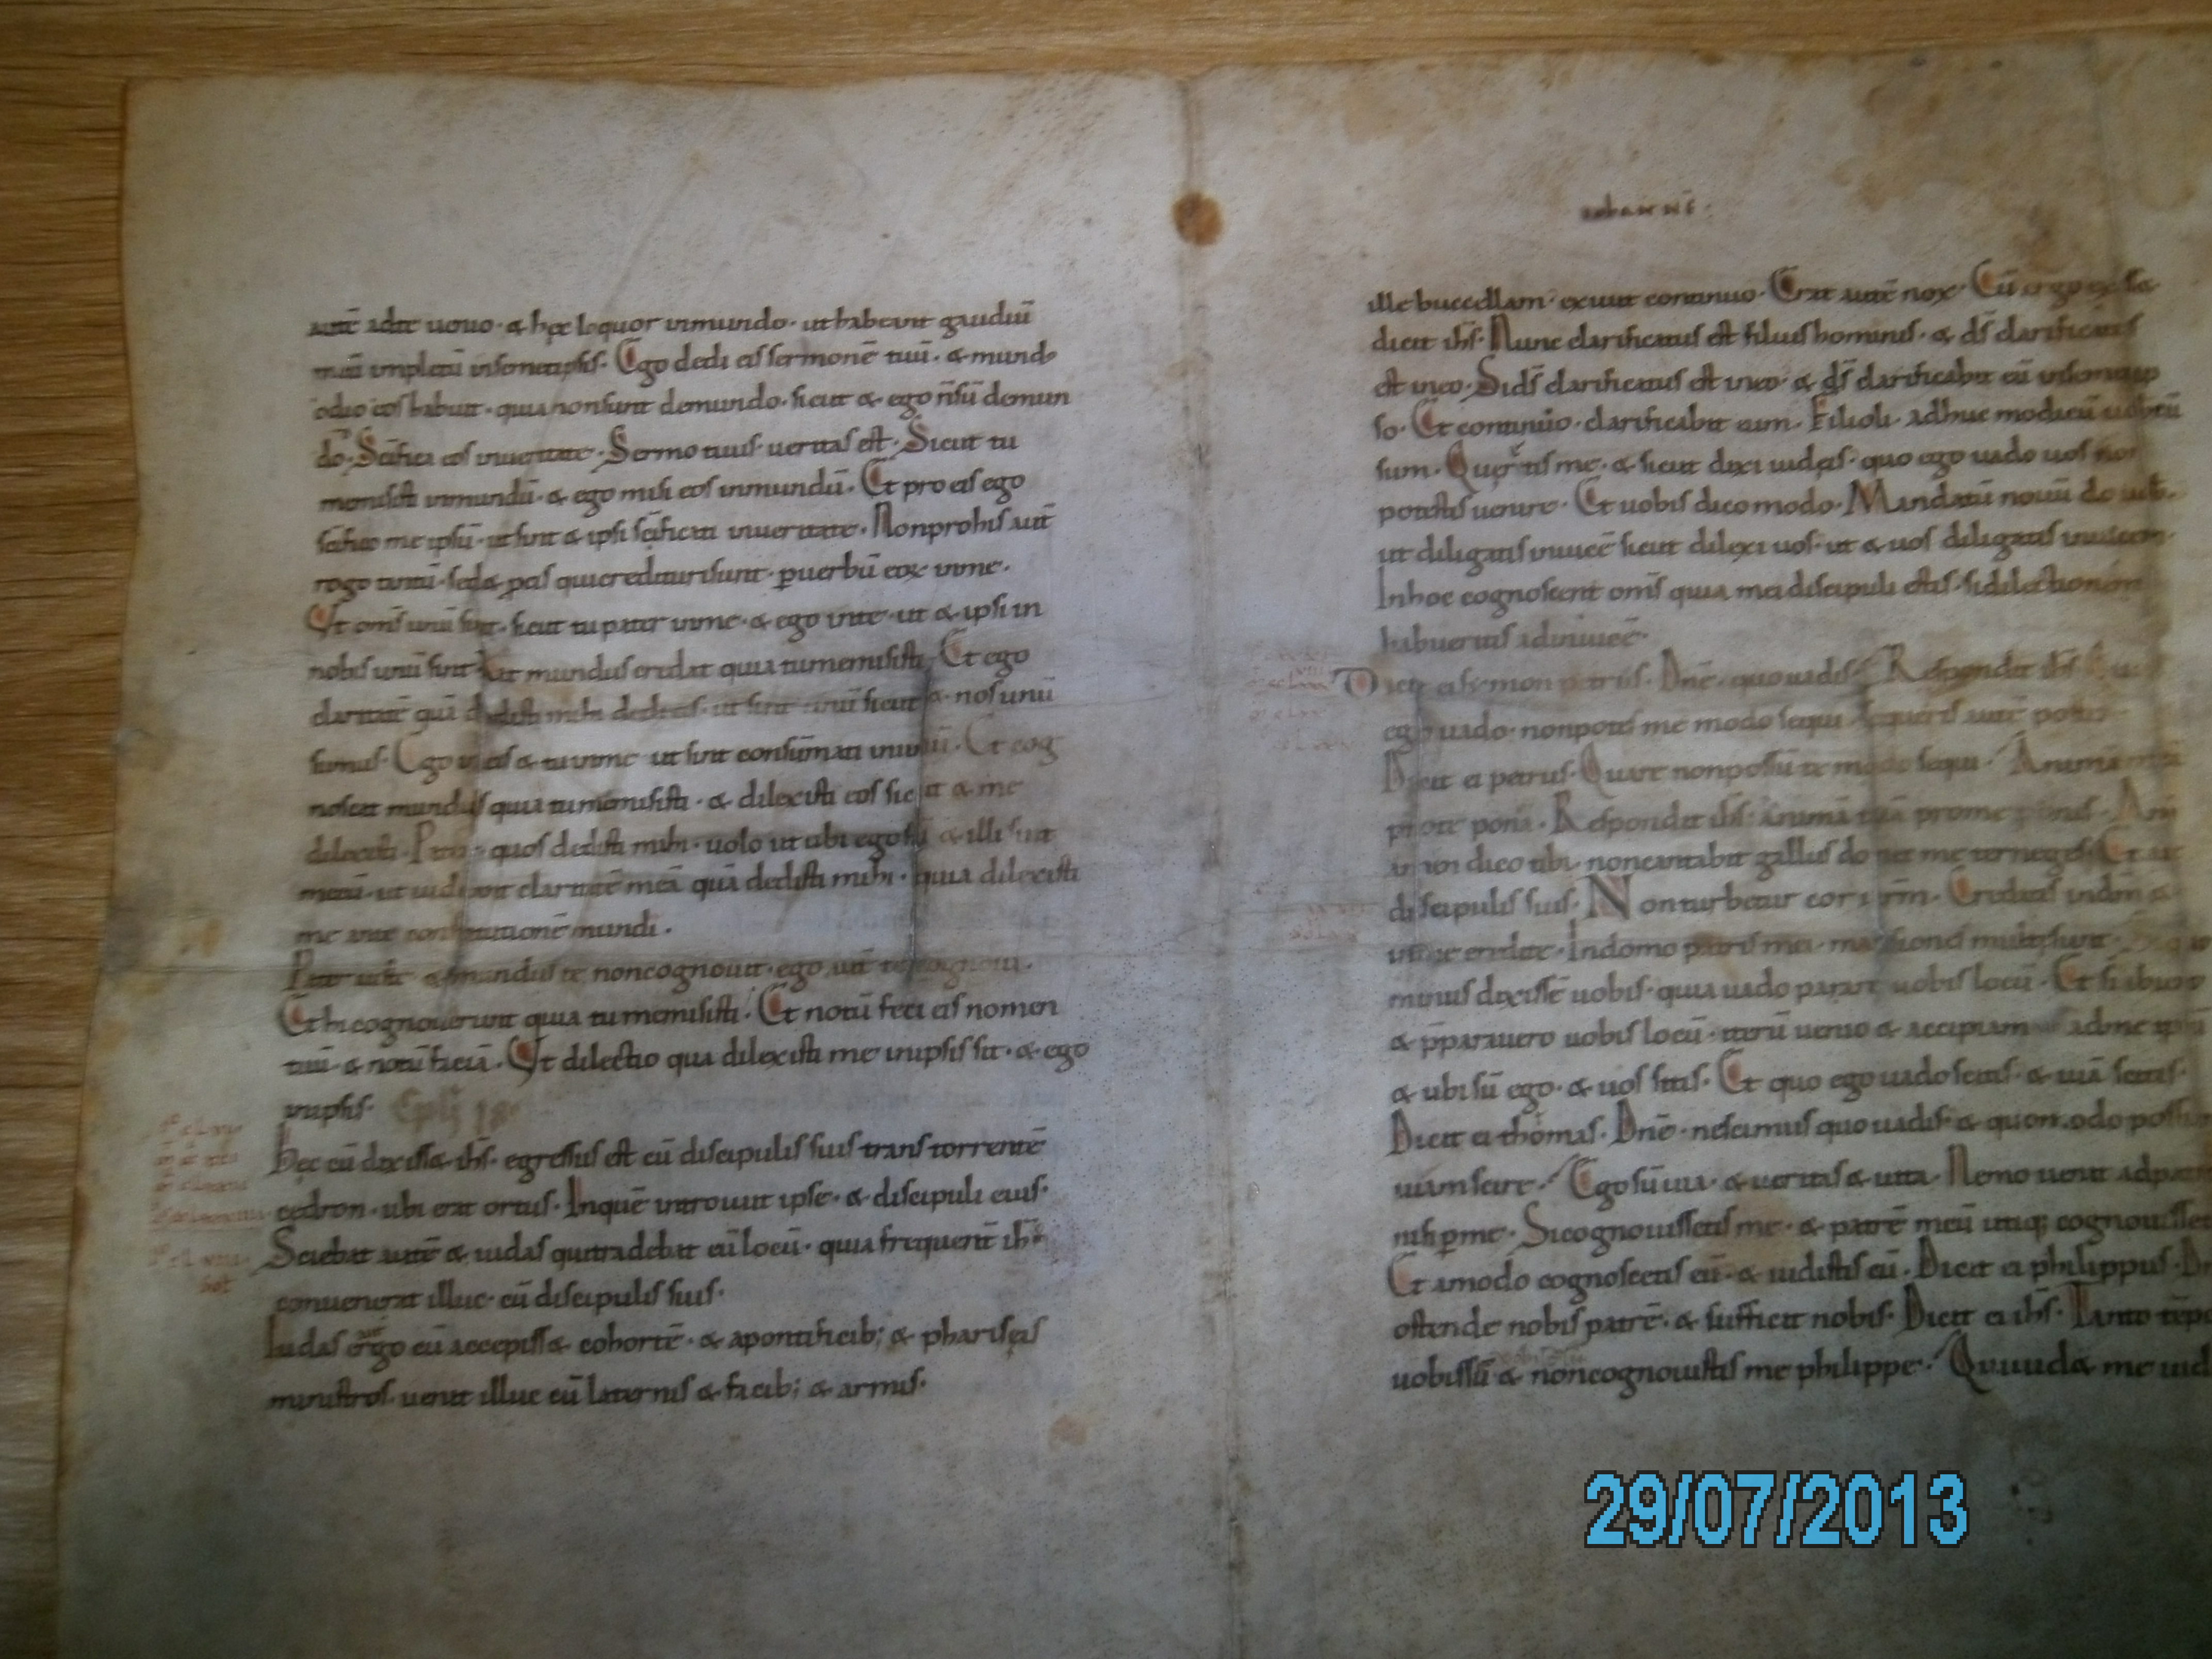 autē ad te uenio · & hęc loquor inmundo · ut habeant gaudiū
meū impletū insemetipsis · Ego dedi eis sermonē tuū · & mund
odio eos habuit · quia non sunt demundo · sicut & ego n̄ sū demun
do · Sc̄ifica eos inueritate · Sermo tuus ueritas est · Sicut tu
memisisti inmundū · & ego misi eos inmundū · Et pro eis ego
sc̄ifico me ipsū · ut sint & ipsi sc̄ificati inueritate · Nonprohis aut̄
rogo tantū · sed & ꝓeis quicredituri sunt · ꝑuerbū eoꝝ inme ·
Ut om̄s unū sint · sicut tu pater inme · & ego inte · ut & ipsi in
nobis unū sint · ut mundus credat quia tumemisisti · Et ego
claritatē quā dedisti mihi dedi eis · ut sint unū sicut & nos unū
sumus · Ego in eis & tu inme ut sint consūmati inunū · Et cog
noscat mundus quia tumemisisti · & dilexisti eos sicut & me
dilexisti · Pater quos dedisti mihi · uolo ut ubi ego sū & illi sint
mecū · ut uideant claritatē meā quā dedisti mihi · quia dilexisti
me ante constitutionē mundi ·
Pater iuste & mundus te noncognouit · ego aut̄ te cognoui ·
Et hi cognouerunt quia tu memisisti · Et notū feci eis nomen
tuū · & notū faciā · Ut dilectio qua dilexisti me inipsis sit · & ego
inipsis ·
Hęc cū dixiss& ih̄s · egressus est cū discipulis suis trans torrentē
cedron · ubi erat ortus · Inquē introiuit ipse · & discipuli eius ·
Sciebat autē & iudas quitradebat eū locū · quia frequent̄ ih̄s
conuenerat illuc · cū discipulis suis ·
Iudas ergo cū accepiss& cohortē · & apontificib; & phariseis
ministros · uenit illuc cū laternis & facib; & armis ·
iohannis ·
ille buccellam · exiuit continuo · Erat autē nox · Cū ergo exiss&
dicit ih̄s · Nunc clarificatus est filius hominis · & d̄s clarificatus
est ineo · Sid̄s clarificatus est ineo · & d̄s clarificabit eū insemetip
so · Et continuo · clarificabit eum · Filioli · adhuc modicū uobcū
sum · Queritis me · & sicut dixi iudeis · quo ego uado uos non
potestis uenire · Et uobis dico modo · Mandatū nouū do uob ·
ut diligatis inuicē sicut dilexi uos · ut & uos diligatis inuicem ·
Inhoc cognoscent om̄s quia mei discipuli estis · sidilectionem
habueritis adinuicē ·
Dicit ei simon petrus · Dn̄e · quouadis · Respondit ih̄s · Quo
ego uado · nonpotes me modo sequi · Sequeris autē postea
Dicit ei petrus · Quare nonpossū te modo sequi · Animā meā
prote ponā · Respondit ih̄s · Animā tuā prome pones · Am
am̄ dico tibi · noncantabit gallus donec me terneges · Et ait
discipulis suis · Nonturbetur cor ur̄m · Creditis indm̄ &
inme credite · Indomo patris mei · mansiones multę sunt · Siquo
minus dixissē uobis · quia uado parare uobis locū · Et si abiero
& p̄parauero uobis locū · iterū uenio & accipiam adme ipsū
& ubi sū ego · & uos sitis · Et quo ego uado scitis · & uiā scitis ·
Dicit ei thomas · Dn̄e · nescimus quo uadis · & quomodo possu
uiam scire · Ego sū uia · & ueritas & uita · Nemo uenit adpat
nisi ꝑme · Sicognouissetis me · & patrē meū utiq; cognouisse
Et amodo cognoscetis eū · & uidistis eū · Dicit ei philippus · D
ostende nobis patrē · & sufficit nobis · Dicit ei ih̄s · Tanto tēp
uobissū & noncognouistis me philippe · Quiuid& me uid
29/07/2013